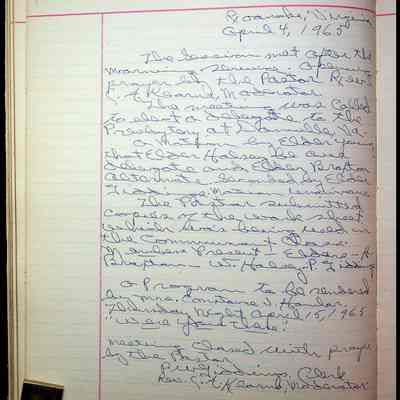 Roanoke, Virginia
April 4, 1965
The Session met after the
morning service. Opening
prayer by the Pastor Rev.
Kearns, Moderator.
The meeting was called
to elect a delegate to the
Presbytery at Danville, Va.
a motion by Elder Young
that Elder Halsey be our
delegate and Elder Braxton
Alternate seconded by Elder
Giddings. Motion
The Pastor submitted
copies of the work sheet
which was being used in
the Communicant Class.
Members Present - Elders - A.
Braxton - W. Halsey - P. Giddings
A Program to be rendered
by Mrs. Constaine J.
Thursday Night April 15, 1965
"Were You There"
Meeting closed with prayer
by the Pastor
P.W. Giddings, Clerk
Rev. Kearns, Moderator